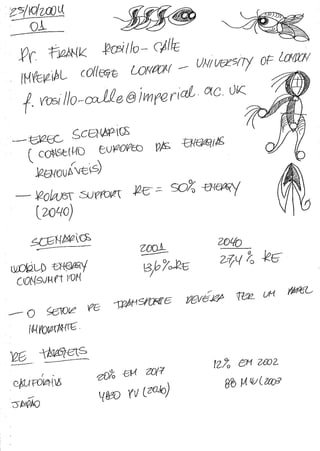 25/10/2004
01
Dr. FRANK Rosillo-Calle
IMPERIAL COLLEGE LONDON - UNIVERSITY OF LONDON
f.rosillo-calle@imperial.ac.uk
- EREC SCENARIOS
( CONSELHO EUROPEO DAS ENERGIAS
RENOVÁVEIS)
- ROBUST SUPPORT RE = 50% ENERGY
(2040)
SCENARIOS
2001 2040
WORLD ENERGY 13,6% RE 27,4% RE
CONSUMPTION
- O SETOR DE TRANSPORTE DEVERÁ TER UM PAPEL
IMPORTANTE.
RE TARGETS
CALIFÓRNIA 20% EM 2017 12% EM 2002
JAPÃO 4820 (2010) 88 MW (2003